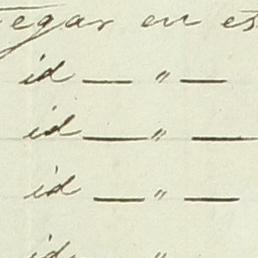 egar en es
id — " —
id — " —
id — " —
id "